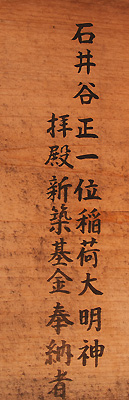 石井谷正一位稲荷大明神
拝殿新築基金奉納者